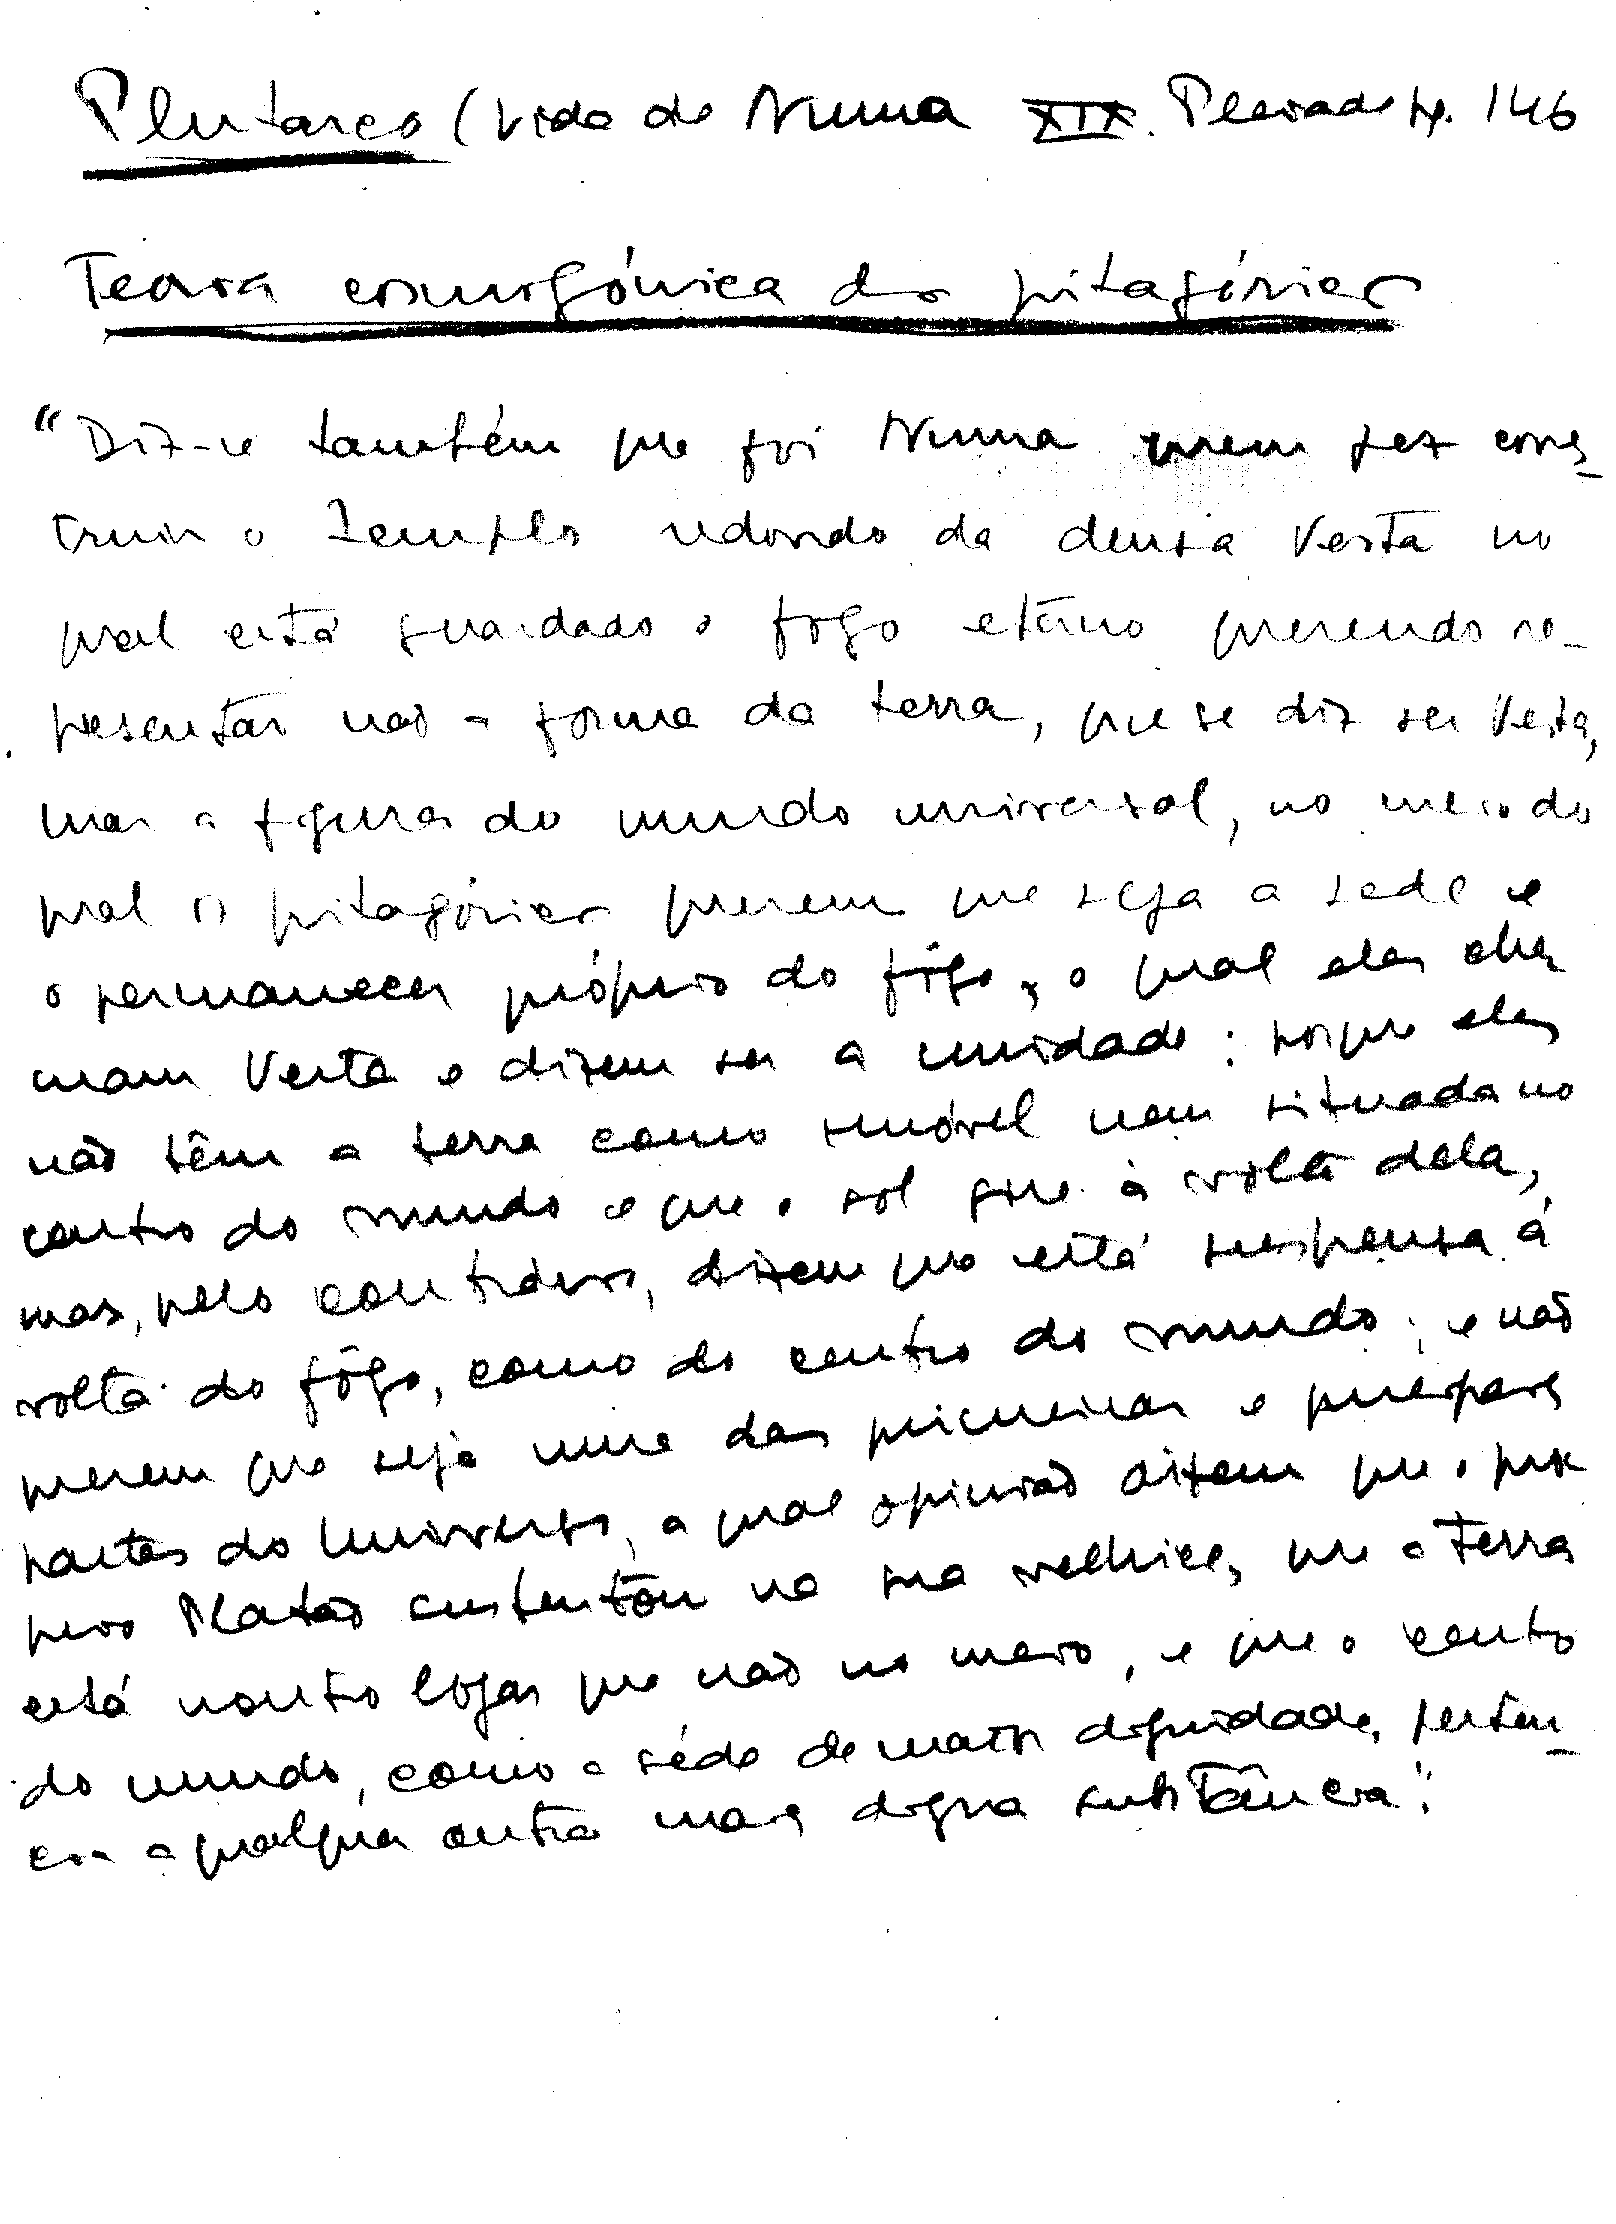 Plutarco (Vida de Numa XIX. Pleiade p. 146
Teoria cosmogónica dos pitagóricos
"Diz-se também que foi Numa quem fez cons-
truir o Templo redondo da deusa Vesta no
qual está guardado o fogo eterno querendo re-
presentar não a forma da terra, que se diz ser Vesta,
mas a figura do mundo universal, no meio do
qual os pitagóricos querem que seja a sede e
o permanecer próprio do fôgo, o qual eles cha
mam Vesta e dizem ser a unidade: porque eles
não têm a terra como imóvel nem situada no
centro do mundo e que o sol gire à volta dela,
mas, pelo contrário, dizem que está suspensa à
volta do fôgo, como do centro do mundo; e não
querem que seja uma das primeiras e principais
partes do Universo, a qual opinião dizem que o pró
prio Platão sustentou na sua velhice, que a Terra
está noutro logar que não no meio, e que o centro
do mundo, como a séde de maior dignidade, perten-
cia a qualquer outra mais digna substância".